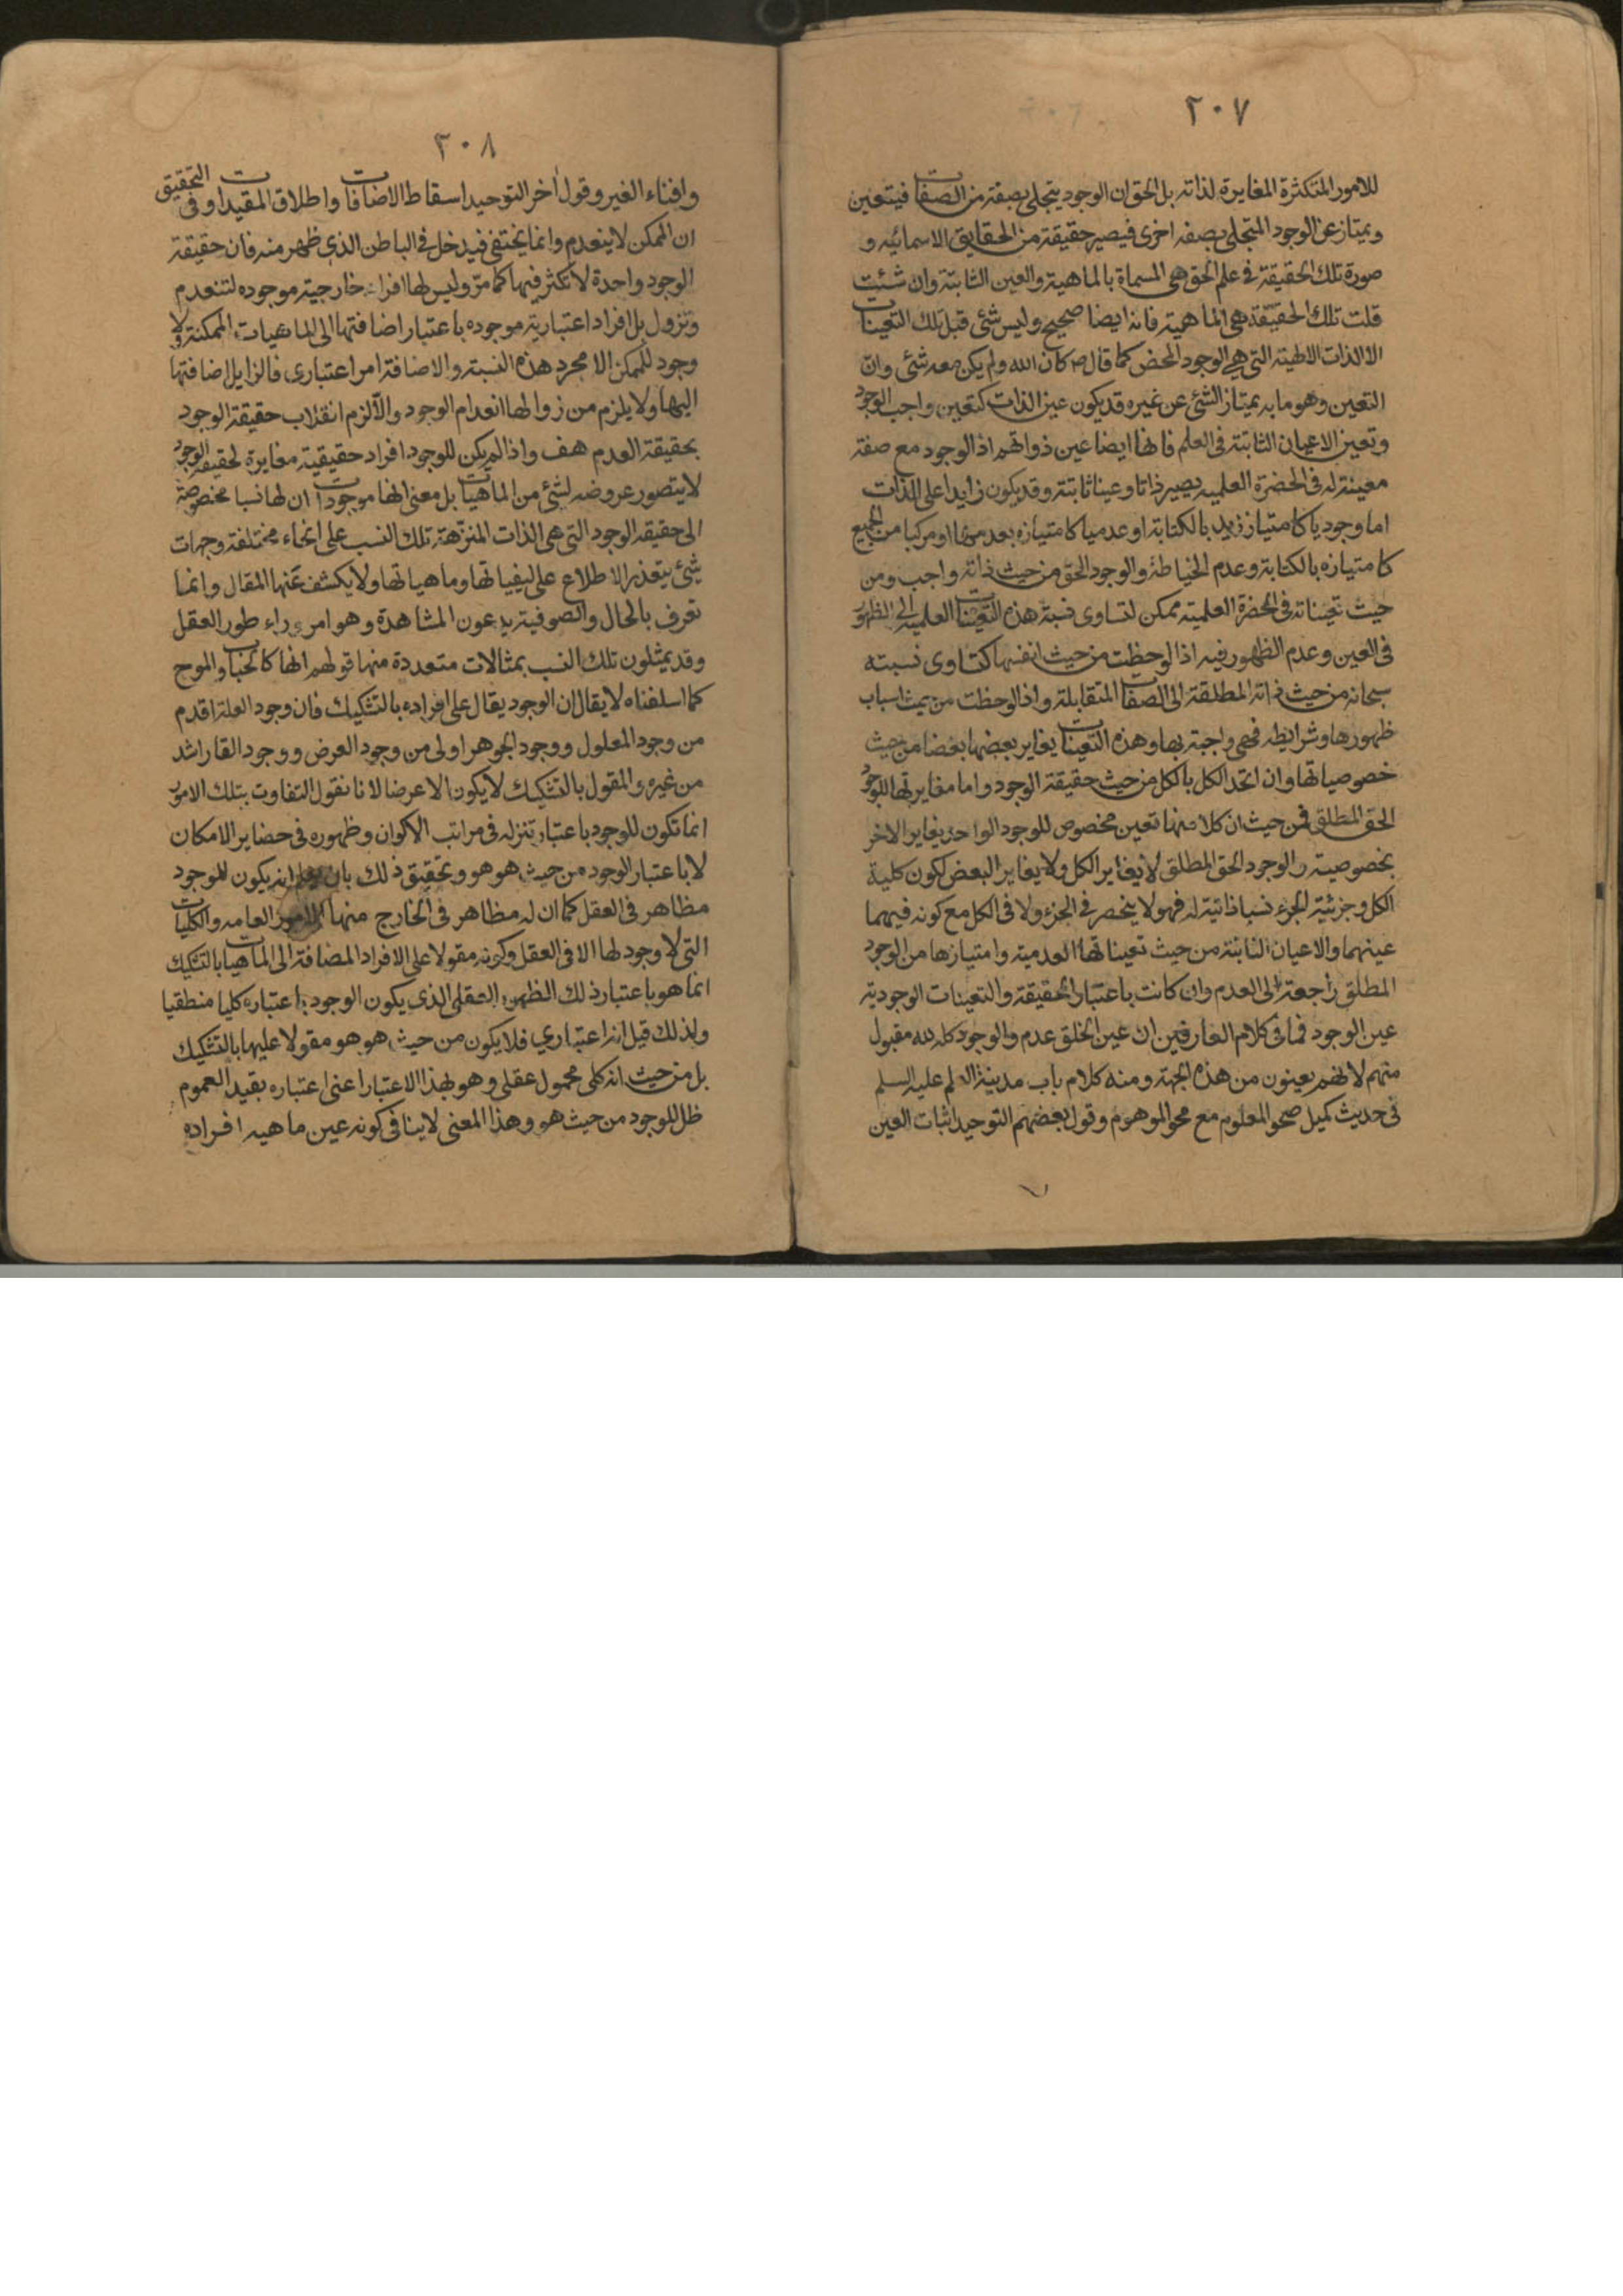 ٢٠٧
للامور المتكثرة المغايرة لذاته بل الحق ان الوجود يتجلى بصفة من الصفات فيتعين
ويمتاز عن الوجود المتجلى بصفه اخرى فيصير حقيقة من الحقايق الاسمائيه و
صورة تلك الحقيقة فى علم الحق هى المسماة بالماهية والعين الثابتة وان شئت
قلت تلك الحقيقة هى الماهية فانه ايضا صحيح وليس شئ قبل تلك التعينات
الا الذات الالهية التى هى الوجود المحض كما قال ص كان الله ولم يكن معه شئ وان
التعين وهو ما به يمتاز الشئ عن غيره قد يكون عين الذات كتعين واجب الوجود
وتعين الاعيان الثابتة فى العلم فانها ايضا عين ذواتهم اذ الوجود مع صفة
معينة له فى الحضرة العلميه يصير ذاتا وعينا ثابتة وقد يكون زايدا على الذات
اما وجوديا كامتياز زيد بالكتابة او عدميا كامتيازه بعدمها او مركبا من الجميع
كامتيازه بالكتابة وعدم الخياطة والوجود الحق من حيث ذاته واجب ومن
حيث تعيناته فى الحضرة العلمية ممكن لتساوى نسبة هذه التعينات العلميه الى الظهور
فى العين وعدم الظهور فيه اذا لوحظت من حيث انفسها كتساوى نسبته
سبحانه من حيث ذاته المطلقة الى الصفات المتقابلة واذا لوحظت من حيث اسباب
ظهورها وشرايطه فهى واجبة بها وهذه التعينات يغاير بعضها بعضا من حيث
خصوصياتها وان اتحد الكل بالكل من حيث حقيقة الوجود واما مغايرتها للوجود
الحق المطلق فمن حيث ان كلا منها تعين مخصوص للوجود الواحد يغاير الاخر
بخصوصيته والوجود الحق المطلق لا يغاير الكل ولا يغاير البعض لكون كلية
الكل وجزئية الجزء نسبا ذاتية له فهو لا ينحصر فى الجزء ولا فى الكل مع كونه فيهما
عينهما والاعيان الثابتة من حيث تعيناتها العدمية وامتيازها من الوجود
المطلق راجعة الى العدم وان كانت باعتبار الحقيقة والتعينات الوجودية
عين الوجود فما فى كلام العارفين ان عين الخلق عدم والوجود كله لله مقبول
منهم لانهم يعينون من هذه الجهة ومنه كلام باب مدينة العلم عليه السلم
فى حديث كميل صحو المعلوم مع محو الموهوم وقول بعضهم التوحيد اثبات العين
٢٠٨
وافناء الغير وقول اخر التوحيد اسقاط الاضافات واطلاق المقيدات وفى التحقيق
ان الممكن لا ينعدم وانما يختفى فيدخل فى الباطن الذى ظهر منه فان حقيقة
الوجود واحدة لا تكثر فيها كما مر وليس لها افراد خارجية موجوده لتنعدم
وتزول بل افراد اعتبارية موجوده باعتبار اضافتها الى الماهيات الممكنة ولا
وجود للممكن الا مجرد هذه النسبة والاضافة امر اعتبارى فالزايل اضافتها
اليها ولا يلزم من زوالها انعدام الوجود والا لزم انقلاب حقيقة الوجود
بحقيقة العدم هف واذا لم يكن للوجود افراد حقيقية مغايرة لحقيقة الوجود
لا يتصور عروضه لشئ من الماهيات بل معنى انها موجودات ان لها نسبا مخصوصة
الى حقيقه الوجود التى هى الذات المنزهة تلك النسب على انحاء مختلفة وجهات
شئ يتعذر الاطلاع على كيفياتها وماهياتها ولا يكشف عنها المقال وانما
تعرف بالحال والصوفية يدعون المشاهدة وهو امر وراء طور العقل
وقد يمثلون تلك النسب بمثالات متعددة منها قولهم انها كالحباب والموج
كما اسلفناه لا يقال ان الوجود يقال على افراده بالتشكيك فان وجود العلة اقدم
من وجود المعلول ووجود الجوهر اولى من وجود العرض ووجود القار اشد
من غيره والمقول بالتشكيك لا يكون الا عرضا لانا نقول التفاوت بتلك الامور
انما تكون للوجود باعتبار تنزله فى مراتب الاكوان وظهوره فى حضاير الامكان
لا باعتبار الوجود من حيث هو هو وتحقيق ذلك بان يعلم انه يكون للوجود
مظاهر فى العقل كما ان له مظاهر فى الخارج منها الامور العامه والكليات
التى لا وجود لها الا فى العقل وكونه مقولا على الافراد المضافة الى الماهيات بالتشكيك
انما هو باعتبار ذلك الظهور العقلى الذى يكون الوجود باعتباره كليا منطقيا
ولذلك قيل انه اعتباري فلا يكون من حيث هو هو مقولا عليها بالتشكيك
بل من حيث انه كلى محمول عقلى وهو بهذا الاعتبار اعنى اعتباره بقيد العموم
ظل للوجود من حيث هو وهذا المعنى لا ينافى كونه عين ماهيه افراده